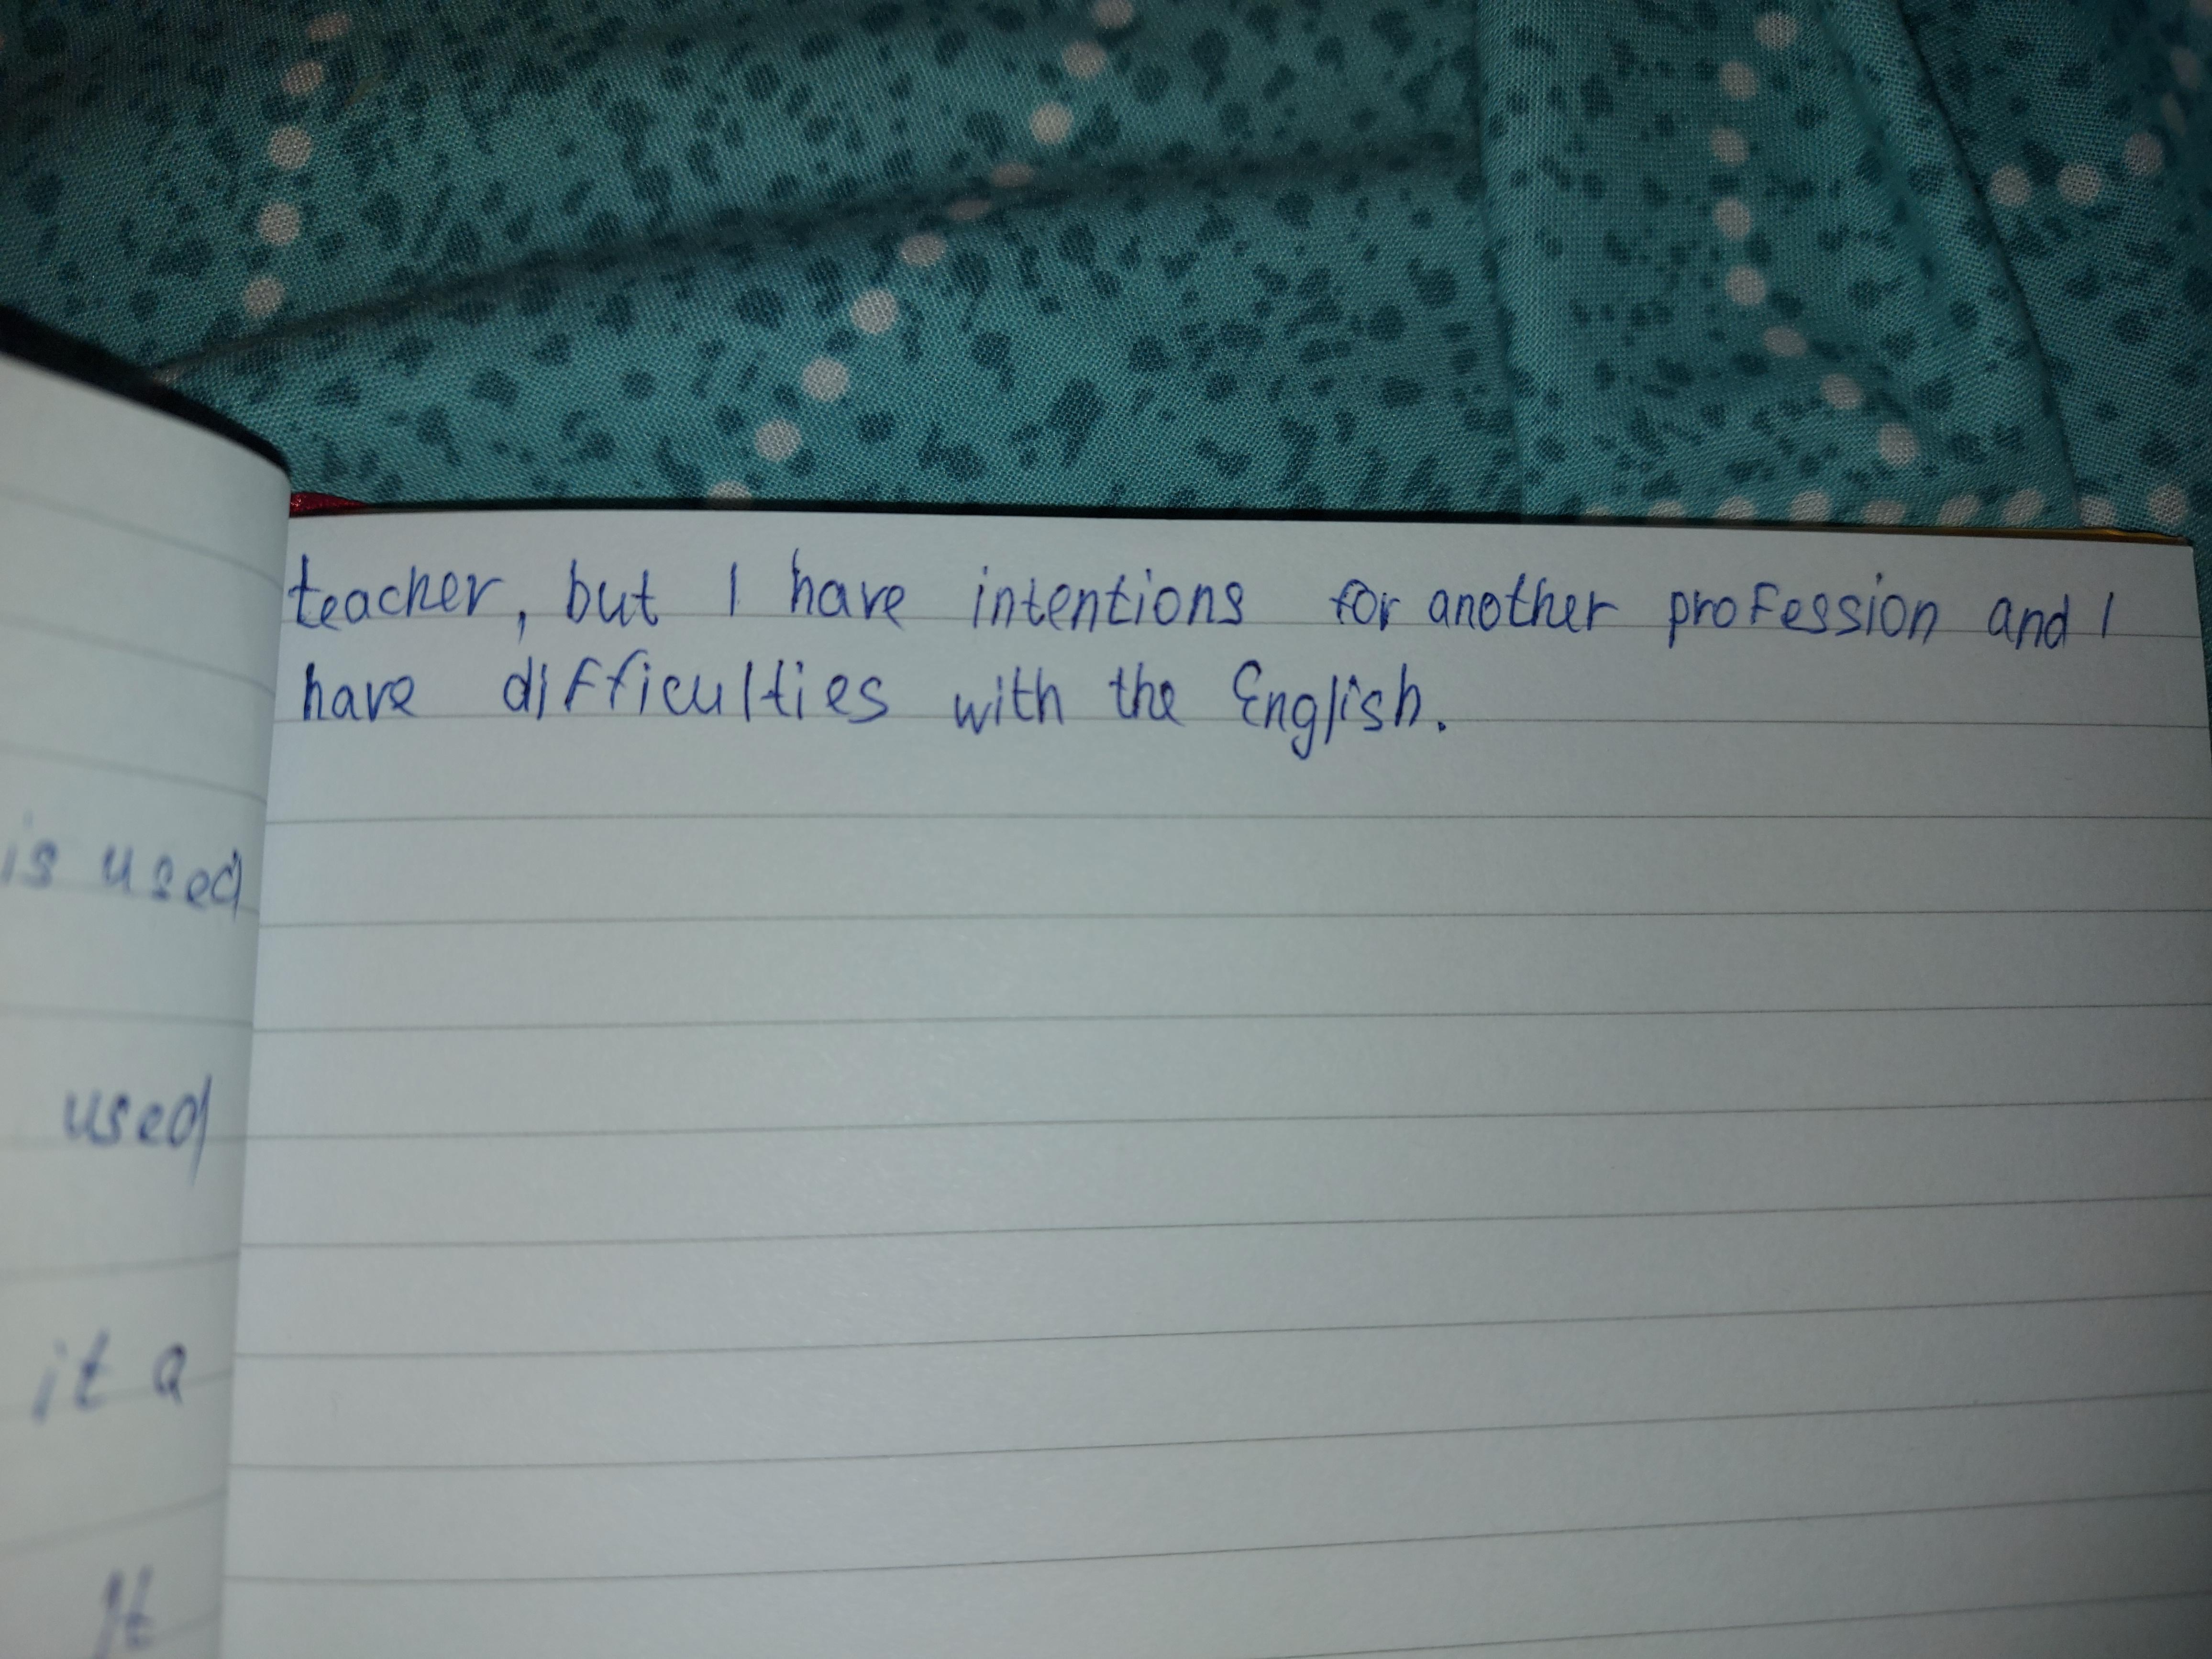 teacher, but I have intentions for another profession and I
have difficulties with the English.
is used
used
it a
It